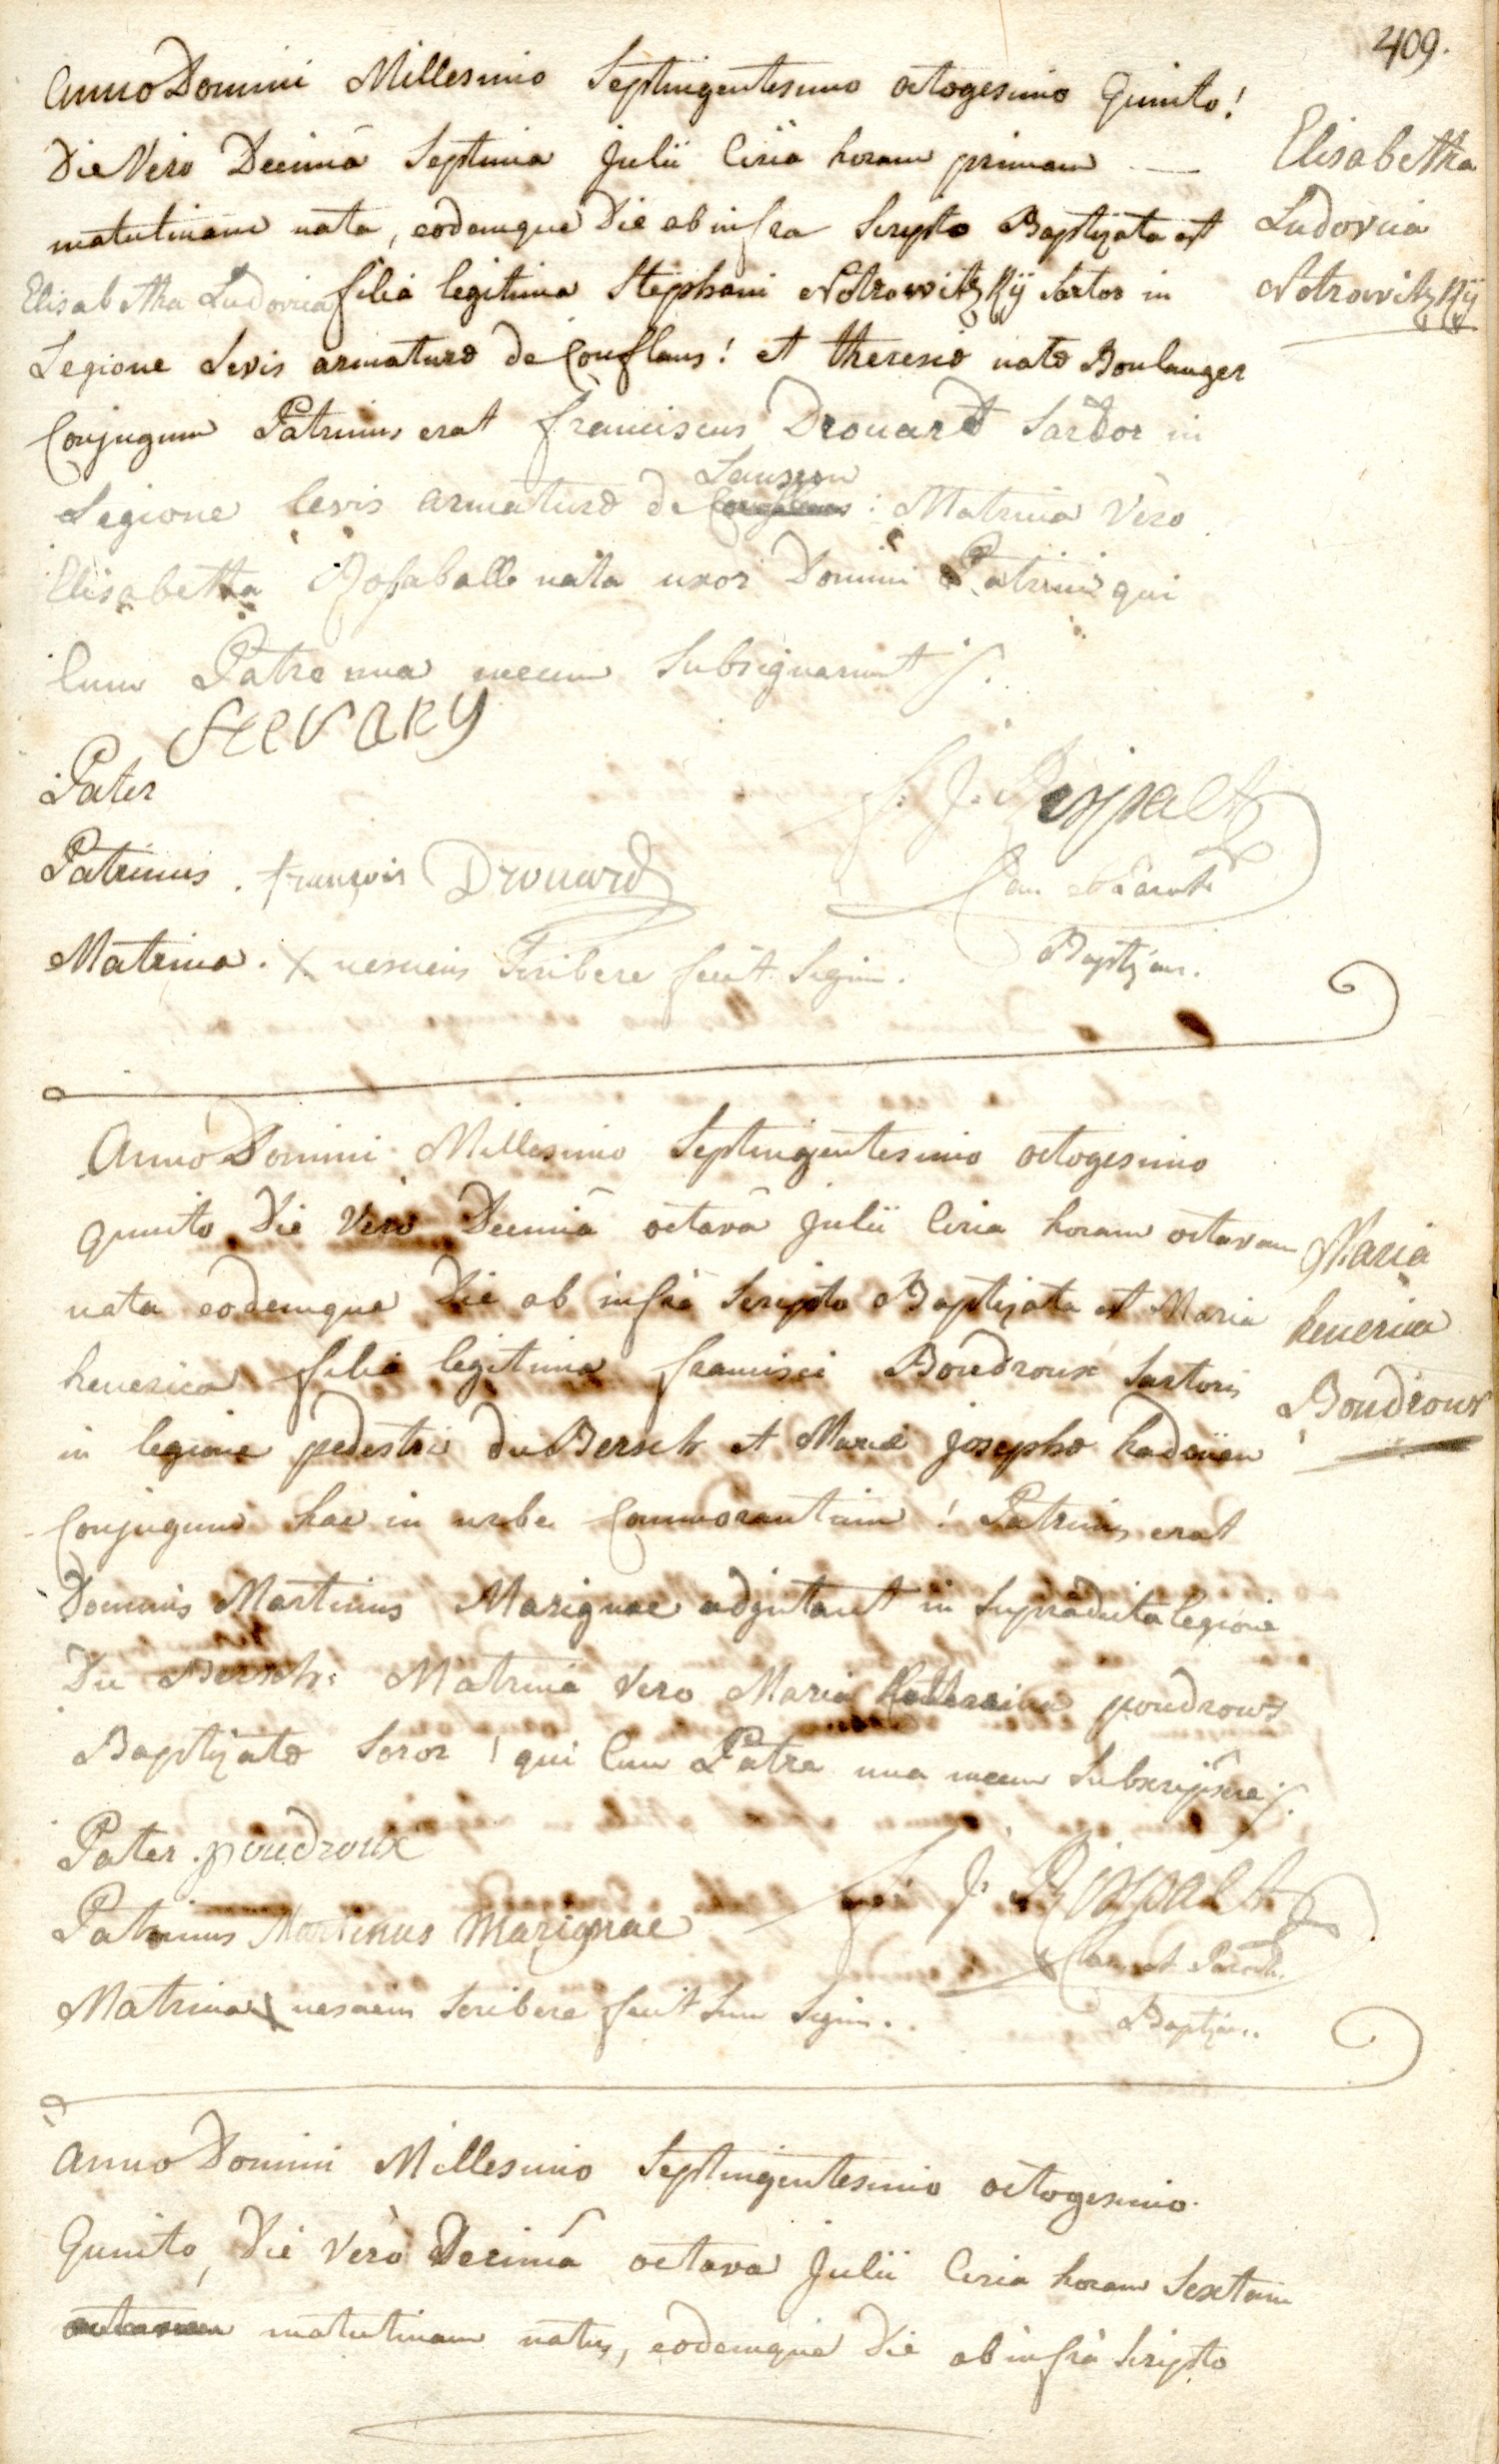 409.
Anno Domini Millesimo Septingentesimo octogesimo Quinto!
Die Vero Decimâ Septima Julii Circa horam primam —
matutinam nata, eodemque Die ab infra Scripto Baptizata est
Elisabetha Ludovica filia legitima Stephani Notrowitzkÿ Sartor in
Legione Levis armaturæ de Conflans! et theresiæ natæ Boulanger
Conjugum Patrinus erat franciscus Drouard Sartor in
Lauzun
Legione levis armaturæ de Conflans : Matrina Vero
Elisabetha nata uxor Domini Patrini qui
Cum Patre una mecum Subsignarunt
Elisabetha
Ludovica
Notrowitzkÿ
Pater
Patrinus . françois Drouard
Matrina . X nesciens Scribere fecit Signum.
F. J.
Can et Paroch
Baptizans.
Anno Domini Millesimo Septingentesimo octogesimo
Quinto Die Vero Decimâ octavâ Julii Circa horam octavam
nata eodemque Die ab infrà Scripto Baptizata est Maria
henerica filia legitima francisci Boudroux Sartoris
in legione pedestri du Bersch et Mariæ josephæ hadouen
Conjugum hac in urbe Commorantium ! Patrinus erat
Dominus Martinus Marignac adjutant in Supradicta legione
Du Bersch: Matrina Vero Maria poudroux
Baptizatæ Soror ! qui Cum Patre una mecum Subscripsere
Maria
henerica
Boudroux
Pater . poudroux
Patrinus Martinus Marignac
Matrina X nesciens Scribere fecit Suum Signum.
F. J.
Can et Paroch.
Baptizans.
Anno Domini Millesimo Septingentesimo octogesimo
Quinto, Die Vero Decimâ octava Julii Circa horam Sextam
octavam matutinam natus, eodemque Die ab infrà Scripto